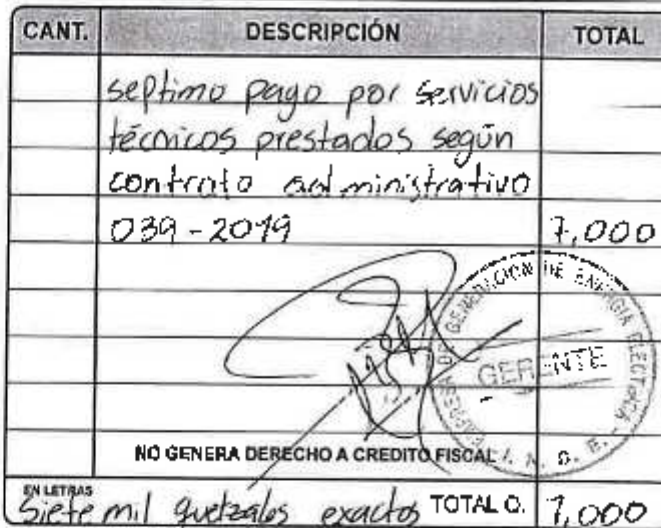 CANT. DESCRIPCIÓN TOTAL
septimo pago por servicios
técnicos prestados según
contrato administrativo
039-2019 7,000
EMPRESA DE GENERACION DE ENERGIA ELECTRICA
GERENTE
I. N. D. E.
NO GENERA DERECHO A CREDITO FISCAL
EN LETRAS
Siete mil quetzales exactos TOTAL Q. 7,000